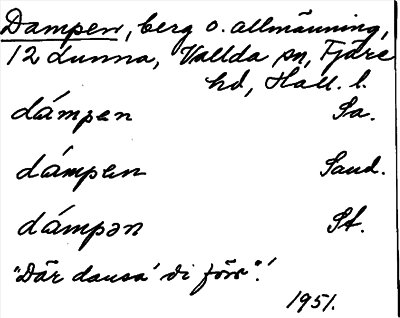 Dampen, berg o. allmänning,
12 Lunna, Vallda sn, Fjäre
hd, Hall. l.
dámpen Sa.
dámpen Sand.
dámpən St.
"Där dansa' di förr".
1951.